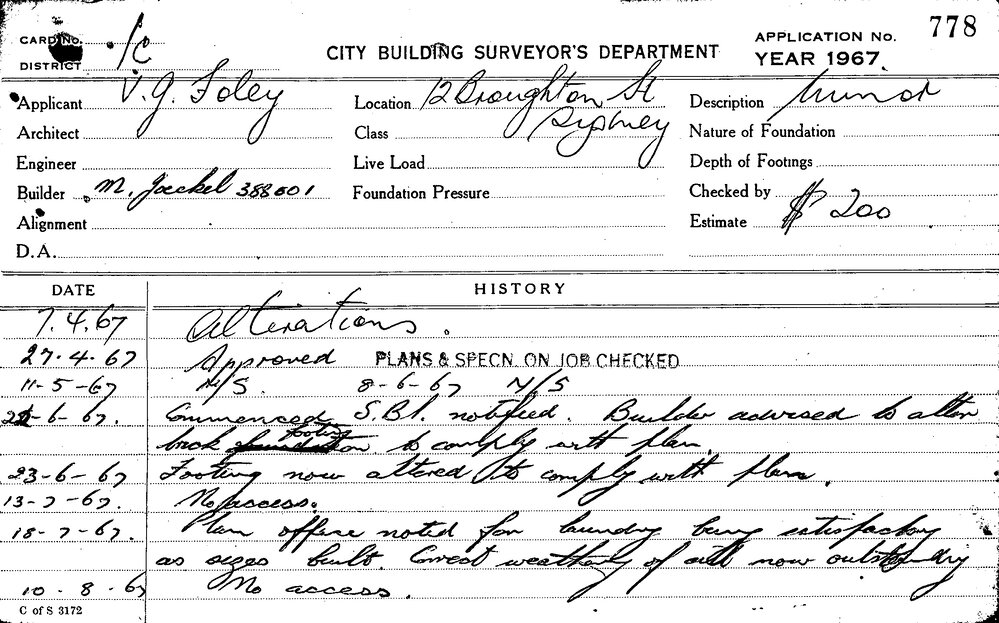 CARD NO. 1C
DISTRICT
CITY BUILDING SURVEYOR'S DEPARTMENT
APPLICATION No. 778
YEAR 1967.
Applicant V. G. Foley
Location 12 Broughton St
Sydney
Description Minor
Architect
Class
Nature of Foundation
Engineer
Live Load
Depth of Footings
Builder M. Jaekel 388601
Foundation Pressure
Checked by
Alignment
Estimate $ 200
D.A.
DATE HISTORY
7.4.67 Alterations.
27.4.67 Approved PLANS & SPECN. ON JOB CHECKED
11-5-67 N/S. 8-6-67 N/S
22-6-67. Commenced S.B.I. notified. Builder advised to alter
brick footing to comply with plan
23-6-67 Footing now altered to comply with plan.
13-7-67. No access.
18-7-67. Plan office noted for laundry being satisfactory
as sizes built. Correct weathering of now outstanding
10-8-67 No access.
C of S 3172